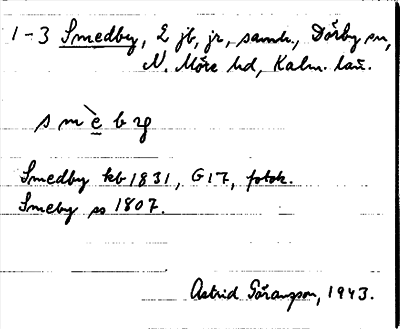 1-3 Smedby, 2 jb, jr, samh., Dörby sn,
N. Möre hd, Kalm. län.
smèby
Smedby kb 1831, G17, fotok.
Smeby ss 1807.
Astrid Göransson, 1943.